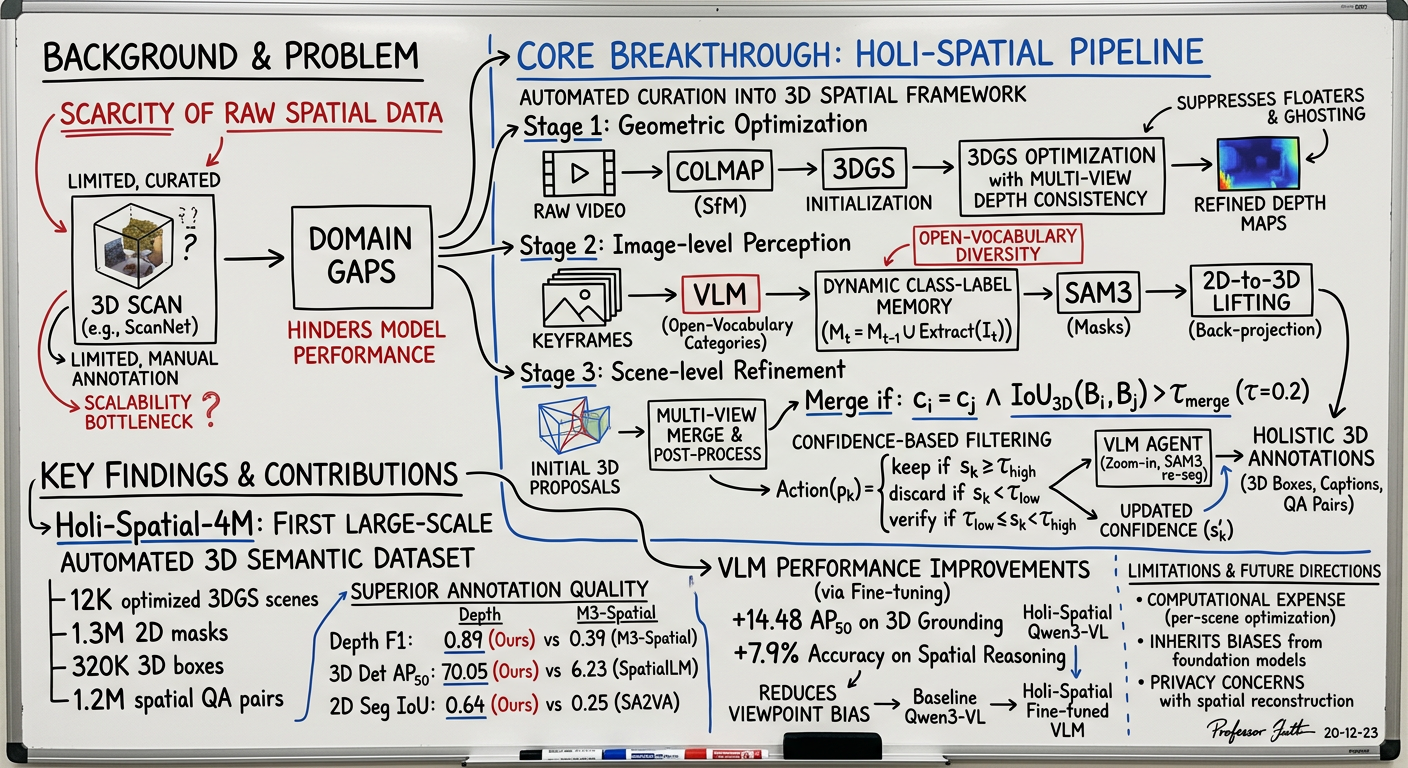 BACKGROUND & PROBLEM
SCARCITY OF RAW SPATIAL DATA
LIMITED, CURATED
?? ?
3D SCAN
(e.g., ScanNet)
LIMITED, MANUAL
ANNOTATION
SCALABILITY
BOTTLENECK ?
DOMAIN
GAPS
HINDERS MODEL
PERFORMANCE
CORE BREAKTHROUGH: HOLI-SPATIAL PIPELINE
AUTOMATED CURATION INTO 3D SPATIAL FRAMEWORK
Stage 1: Geometric Optimization
RAW VIDEO
COLMAP
(SfM)
3DGS
INITIALIZATION
3DGS OPTIMIZATION
with MULTI-VIEW
DEPTH CONSISTENCY
SUPPRESSES FLOATERS
& GHOSTING
REFINED DEPTH
MAPS
Stage 2: Image-level Perception
OPEN-VOCABULARY
DIVERSITY
KEYFRAMES
VLM
(Open-Vocabulary
Categories)
DYNAMIC CLASS-LABEL
MEMORY
(M_t = M_{t-1} ∪ Extract(I_t))
SAM3
(Masks)
2D-to-3D
LIFTING
(Back-projection)
Stage 3: Scene-level Refinement
INITIAL 3D
PROPOSALS
MULTI-VIEW
MERGE &
POST-PROCESS
Merge if: c_i = c_j ∧ IoU_3D(B_i, B_j) > τ_merge (τ=0.2)
CONFIDENCE-BASED FILTERING
Action(p_k) = {
keep if s_k ≥ τ_high
discard if s_k < τ_low
verify if τ_low ≤ s_k < τ_high
VLM AGENT
(Zoom-in, SAM3,
re-seg)
UPDATED
CONFIDENCE (s'_k)
HOLISTIC 3D
ANNOTATIONS
(3D Boxes, Captions,
QA Pairs)
KEY FINDINGS & CONTRIBUTIONS
Holi-Spatial-4M: FIRST LARGE-SCALE
AUTOMATED 3D SEMANTIC DATASET
12K optimized 3DGS scenes
1.3M 2D masks
320K 3D boxes
1.2M spatial QA pairs
SUPERIOR ANNOTATION QUALITY
Depth M3-Spatial
Depth F1: 0.89 (Ours) vs 0.39 (M3-Spatial)
3D Det AP50: 70.05 (Ours) vs 6.23 (SpatialLM)
2D Seg IoU: 0.64 (Ours) vs 0.25 (SA2VA)
VLM PERFORMANCE IMPROVEMENTS
(via Fine-tuning)
+14.48 AP50 on 3D Grounding
+7.9% Accuracy on Spatial Reasoning
REDUCES
VIEWPOINT BIAS
Baseline
Qwen3-VL
Holi-Spatial
Qwen3-VL
Holi-Spatial
Fine-tuned
VLM
LIMITATIONS & FUTURE DIRECTIONS
• COMPUTATIONAL EXPENSE
(per-scene optimization)
• INHERITS BIASES from
foundation models
• PRIVACY CONCERNS
with spatial reconstruction
Professor 20-12-23